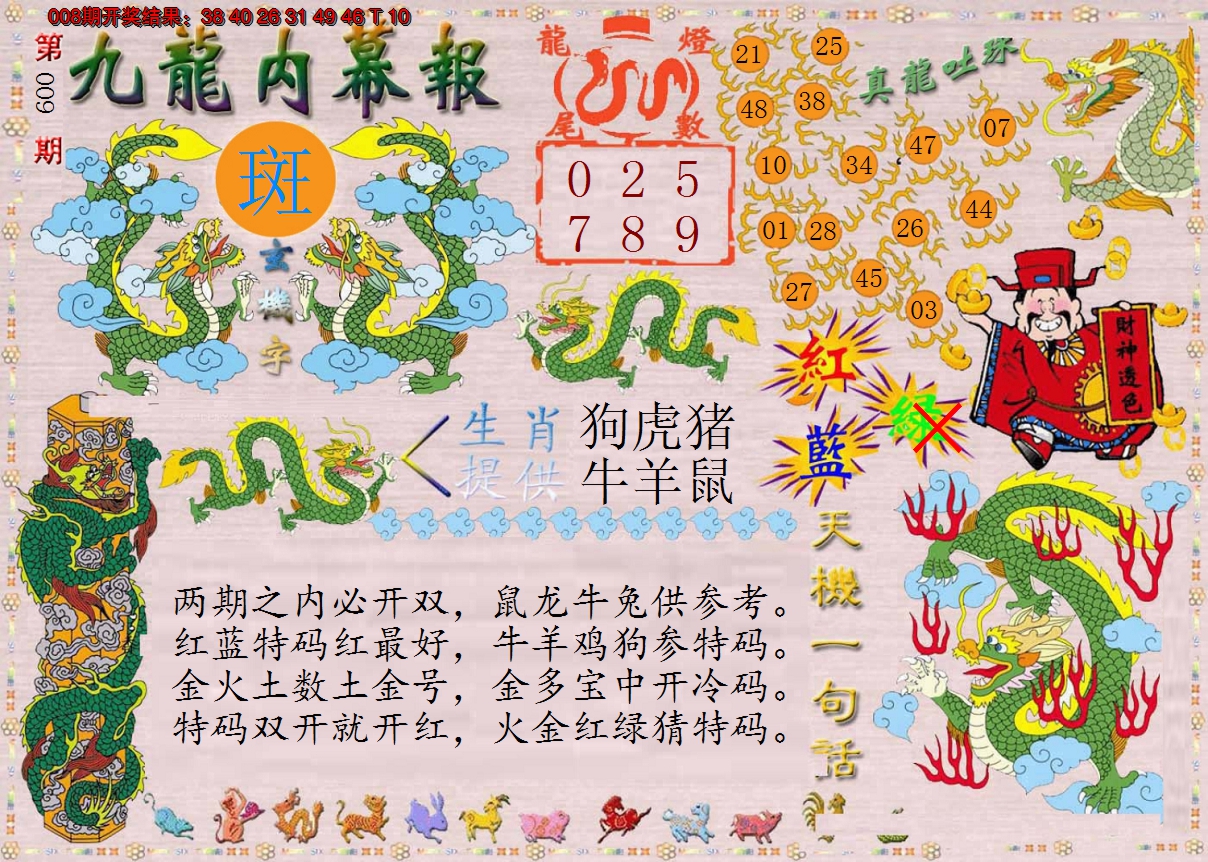 008期开奖结果：38 40 26 31 49 46 T 10
第
009
期
九龍内幕報
斑
玄
機
字
龍 燈
尾 數
0 2 5
7 8 9
真龍吐珠
21
25
48
38
47
07
10
34
44
01
28
26
45
27
03
紅
綠
藍
財神透色
生肖
提供
狗虎猪
牛羊鼠
天機一句話
两期之内必开双，鼠龙牛兔供参考。
红蓝特码红最好，牛羊鸡狗参特码。
金火土数土金号，金多宝中开冷码。
特码双开就开红，火金红绿猜特码。